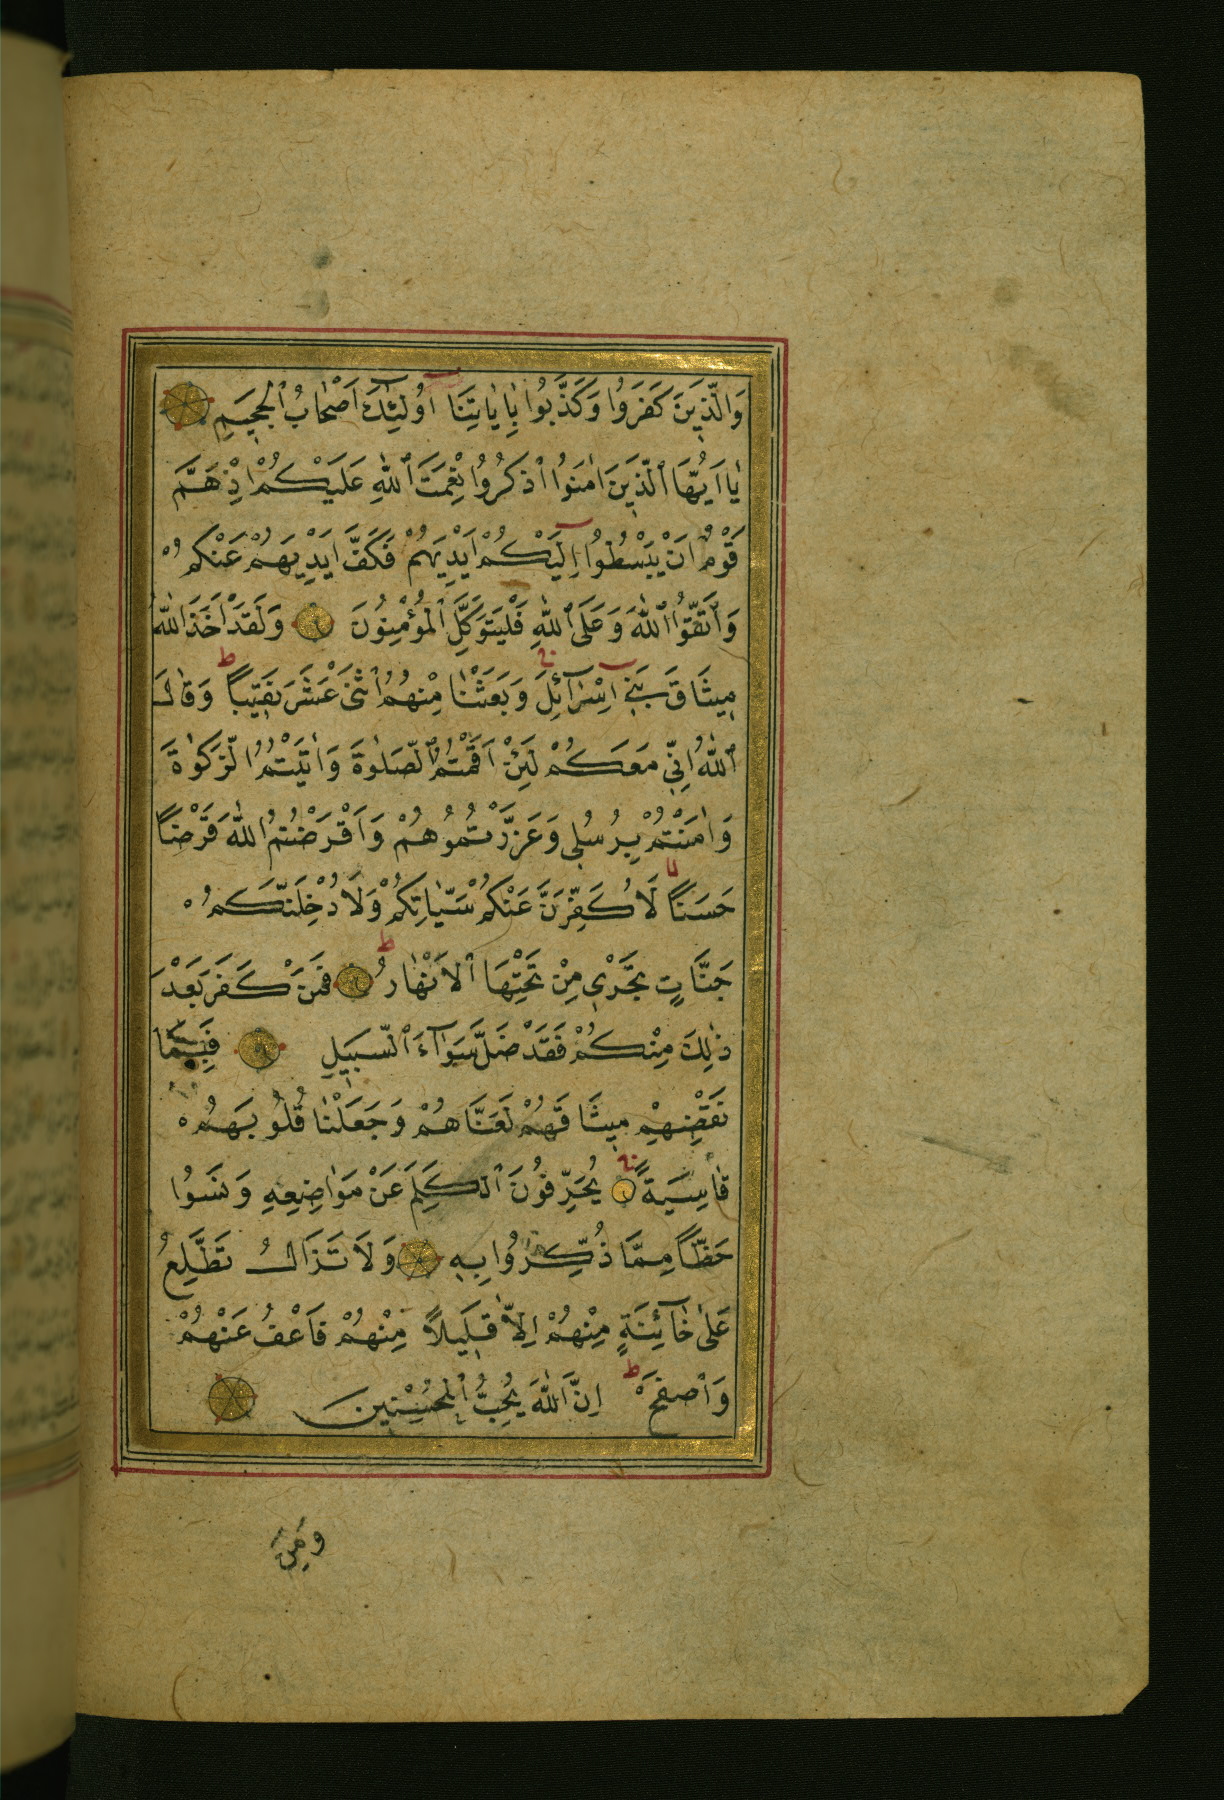 وَالَّذِينَ كَفَرُوا وَكَذَّبُوا بِاٰيَاتِنَا اُولٰئِكَ اَصْحَابُ الْجَحِيمِ
يَا اَيُّهَا الَّذِينَ اٰمَنُوا اذْكُرُوا نِعْمَتَ اللّٰهِ عَلَيْكُمْ اِذْ هَمَّ
قَوْمٌ اَنْ يَبْسُطُوا اِلَيْكُمْ اَيْدِيَهُمْ فَكَفَّ اَيْدِيَهُمْ عَنْكُمْ
وَاتَّقُوا اللّٰهَ وَعَلَى اللّٰهِ فَلْيَتَوَكَّلِ الْمُؤْمِنُونَ وَلَقَدْ اَخَذَ اللّٰهُ
مِيثَاقَ بَنِي اِسْرَآئِلَ وَبَعَثْنَا مِنْهُمُ اثْنَيْ عَشَرَ نَقِيبًا ط وَقَالَ
اللّٰهُ اِنِّي مَعَكُمْ لَئِنْ اَقَمْتُمُ الصَّلٰوةَ وَاٰتَيْتُمُ الزَّكٰوةَ
وَاٰمَنْتُمْ بِرُسُلِي وَعَزَّرْتُمُوهُمْ وَاَقْرَضْتُمُ اللّٰهَ قَرْضًا
حَسَنًا لا لَاُكَفِّرَنَّ عَنْكُمْ سَيِّاٰتِكُمْ وَلَاُدْخِلَنَّكُمْ
جَنَّاتٍ تَجْرِي مِنْ تَحْتِهَا الْاَنْهَارُ ط فَمَنْ كَفَرَ بَعْدَ
ذٰلِكَ مِنْكُمْ فَقَدْ ضَلَّ سَوَآءَ السَّبِيلِ فَبِمَا
نَقْضِهِمْ مِيثَاقَهُمْ لَعَنَّاهُمْ وَجَعَلْنَا قُلُوبَهُمْ
قَاسِيَةً يُحَرِّفُونَ الْكَلِمَ عَنْ مَوَاضِعِهِ وَنَسُوا
حَظًّا مِمَّا ذُكِّرُوا بِهِ وَلَا تَزَالُ تَطَّلِعُ
عَلٰى خَآئِنَةٍ مِنْهُمْ اِلَّا قَلِيلًا مِنْهُمْ فَاعْفُ عَنْهُمْ
وَاصْفَحْ ط اِنَّ اللّٰهَ يُحِبُّ الْمُحْسِنِينَ
وَمِنَ